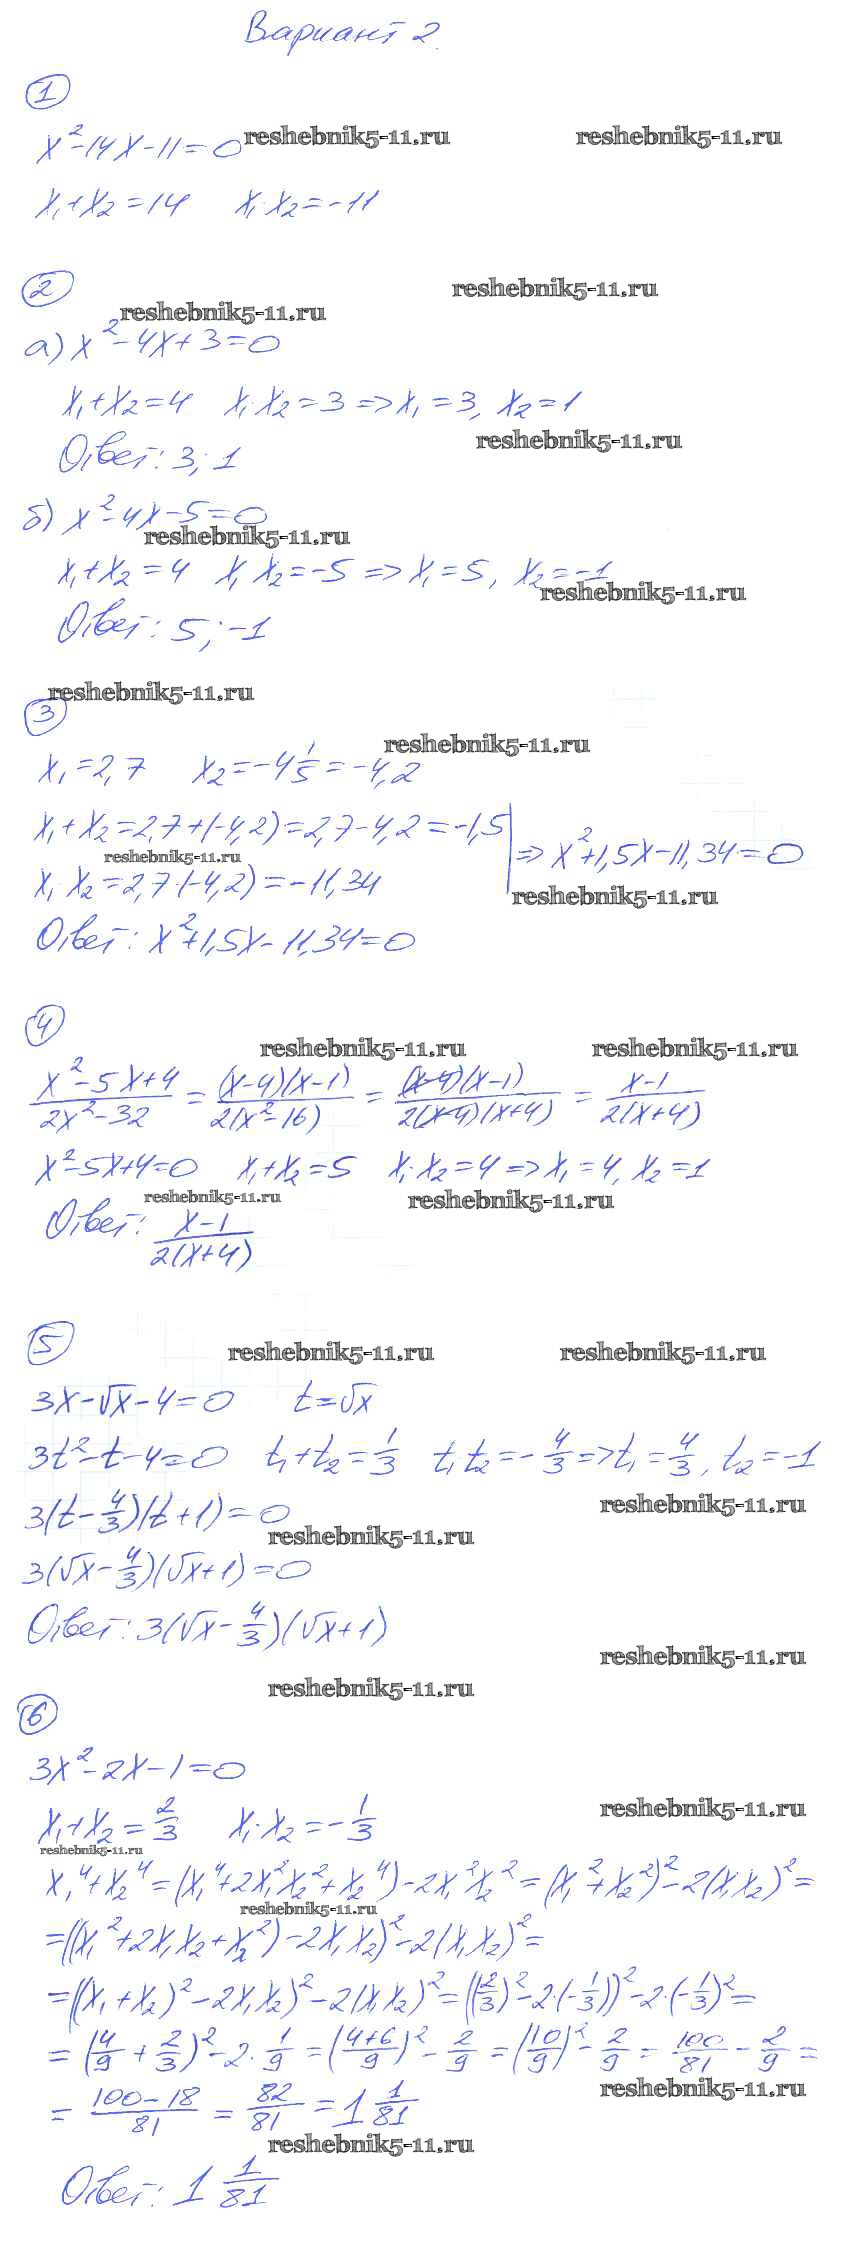 Вариант 2.
1
x²-14x-11=0 reshebnik5-11.ru reshebnik5-11.ru
x₁+x₂=14 x₁·x₂=-11
2 reshebnik5-11.ru
reshebnik5-11.ru
а) x²-4x+3=0
x₁+x₂=4 x₁·x₂=3=>x₁=3, x₂=1
reshebnik5-11.ru
Ответ: 3; 1
б) x²-4x-5=0
reshebnik5-11.ru
x₁+x₂=4 x₁x₂=-5=>x₁=5, x₂=-1
reshebnik5-11.ru
Ответ: 5; -1
reshebnik5-11.ru
3
reshebnik5-11.ru
x₁=2,7 x₂=-4 1/5=-4,2
x₁+x₂=2,7+(-4,2)=2,7-4,2=-1,5 | => x²+1,5x-11,34=0
reshebnik5-11.ru
x₁x₂=2,7·(-4,2)=-11,34
reshebnik5-11.ru
Ответ: x²+1,5x-11,34=0
4
reshebnik5-11.ru reshebnik5-11.ru
(x²-5x+4)/(2x²-32) = (x-4)(x-1)/(2(x²-16)) = (x-4)(x-1)/(2(x-4)(x+4)) = (x-1)/(2(x+4))
x²-5x+4=0 x₁+x₂=5 x₁·x₂=4=>x₁=4, x₂=1
reshebnik5-11.ru reshebnik5-11.ru
Ответ: (x-1)/(2(x+4))
5
reshebnik5-11.ru reshebnik5-11.ru
3x-√x-4=0 t=√x
3t²-t-4=0 t₁+t₂=1/3 t₁t₂=-4/3=>t₁=4/3, t₂=-1
reshebnik5-11.ru
3(t-4/3)(t+1)=0
reshebnik5-11.ru
3(√x-4/3)(√x+1)=0
Ответ: 3(√x-4/3)(√x+1)
reshebnik5-11.ru
reshebnik5-11.ru
6
3x²-2x-1=0
reshebnik5-11.ru
x₁+x₂=2/3 x₁·x₂=-1/3
reshebnik5-11.ru
x₁⁴+x₂⁴=(x₁⁴+2x₁²x₂²+x₂⁴)-2x₁²x₂²=(x₁²+x₂²)²-2(x₁x₂)²=
reshebnik5-11.ru
=((x₁²+2x₁x₂+x₂²)-2x₁x₂)²-2(x₁x₂)²=
=((x₁+x₂)²-2x₁x₂)²-2(x₁x₂)²=((2/3)²-2·(-1/3))²-2·(-1/3)²=
=(4/9+2/3)²-2·1/9=((4+6)/9)²-2/9=(10/9)²-2/9=100/81-2/9=
reshebnik5-11.ru
=(100-18)/81=82/81=1 1/81
reshebnik5-11.ru
Ответ: 1 1/81